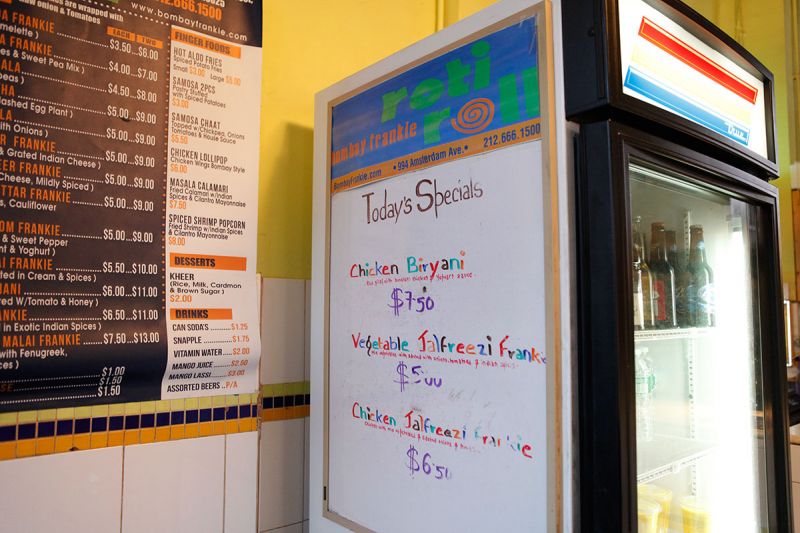 212.666.1500
onion & Tomatoes
www.bombayfrankie.com
EACH TWO
FRANKIE
$3.50...$6.00
FRANKIE
& Sweet Pea Mix )
$4.00...$7.00
$4.50...$8.00
$5.00...$9.00
Egg Plant )
$5.00...$9.00
with Onions )
FRANKIE
$5.00...$9.00
& Grated Indian Cheese )
FRANKIE
$5.00...$9.00
Cheese, Mildly Spiced )
FRANKIE
$5.00...$9.00
Cauliflower
FRANKIE
$5.00...$9.00
& Sweet Pepper
& Yoghurt )
$5.50...$10.00
in Cream & Spices )
$6.00...$11.00
W/Tomato & Honey )
$6.50...$11.00
in Exotic Indian Spices )
MALAI FRANKIE
$7.50...$13.00
with Fenugreek,
$1.00
$1.50
$1.50
FINGER FOODS
HOT ALOO FRIES
Spiced Potato Fries
Small $3.00 Large $5.00
SAMOSA 2PCS
Pastry Stuffed
with Spiced Potatoes
$3.00
SAMOSA CHAAT
Topped w/Chickpea, Onions
Tomatoes & House Sauce
$5.50
CHICKEN LOLLIPOP
Chicken Wings Bombay Style
$6.00
MASALA CALAMARI
Fried Calamari w/Indian
Spices & Cilantro Mayonnaise
$7.50
SPICED SHRIMP POPCORN
Fried Shrimp w/Indian Spices
& Cilantro Mayonnaise
$8.00
DESSERTS
KHEER
(Rice, Milk, Cardmon
& Brown Sugar )
$2.00
DRINKS
CAN SODA'S ..... $1.25
SNAPPLE ..... $1.75
VITAMIN WATER ..... $2.00
MANGO JUICE ..... $2.50
MANGO LASSI ..... $3.00
ASSORTED BEERS ..P/A
roti
roll
bombay frankie
212.666.1500
Bombayfrankie.com • 994 Amsterdam Ave. •
Today's Specials
Chicken Biryani
$7.50
Vegetable Jalfreezi Frankie
$5.00
Chicken Jalfreezi Frankie
$6.50